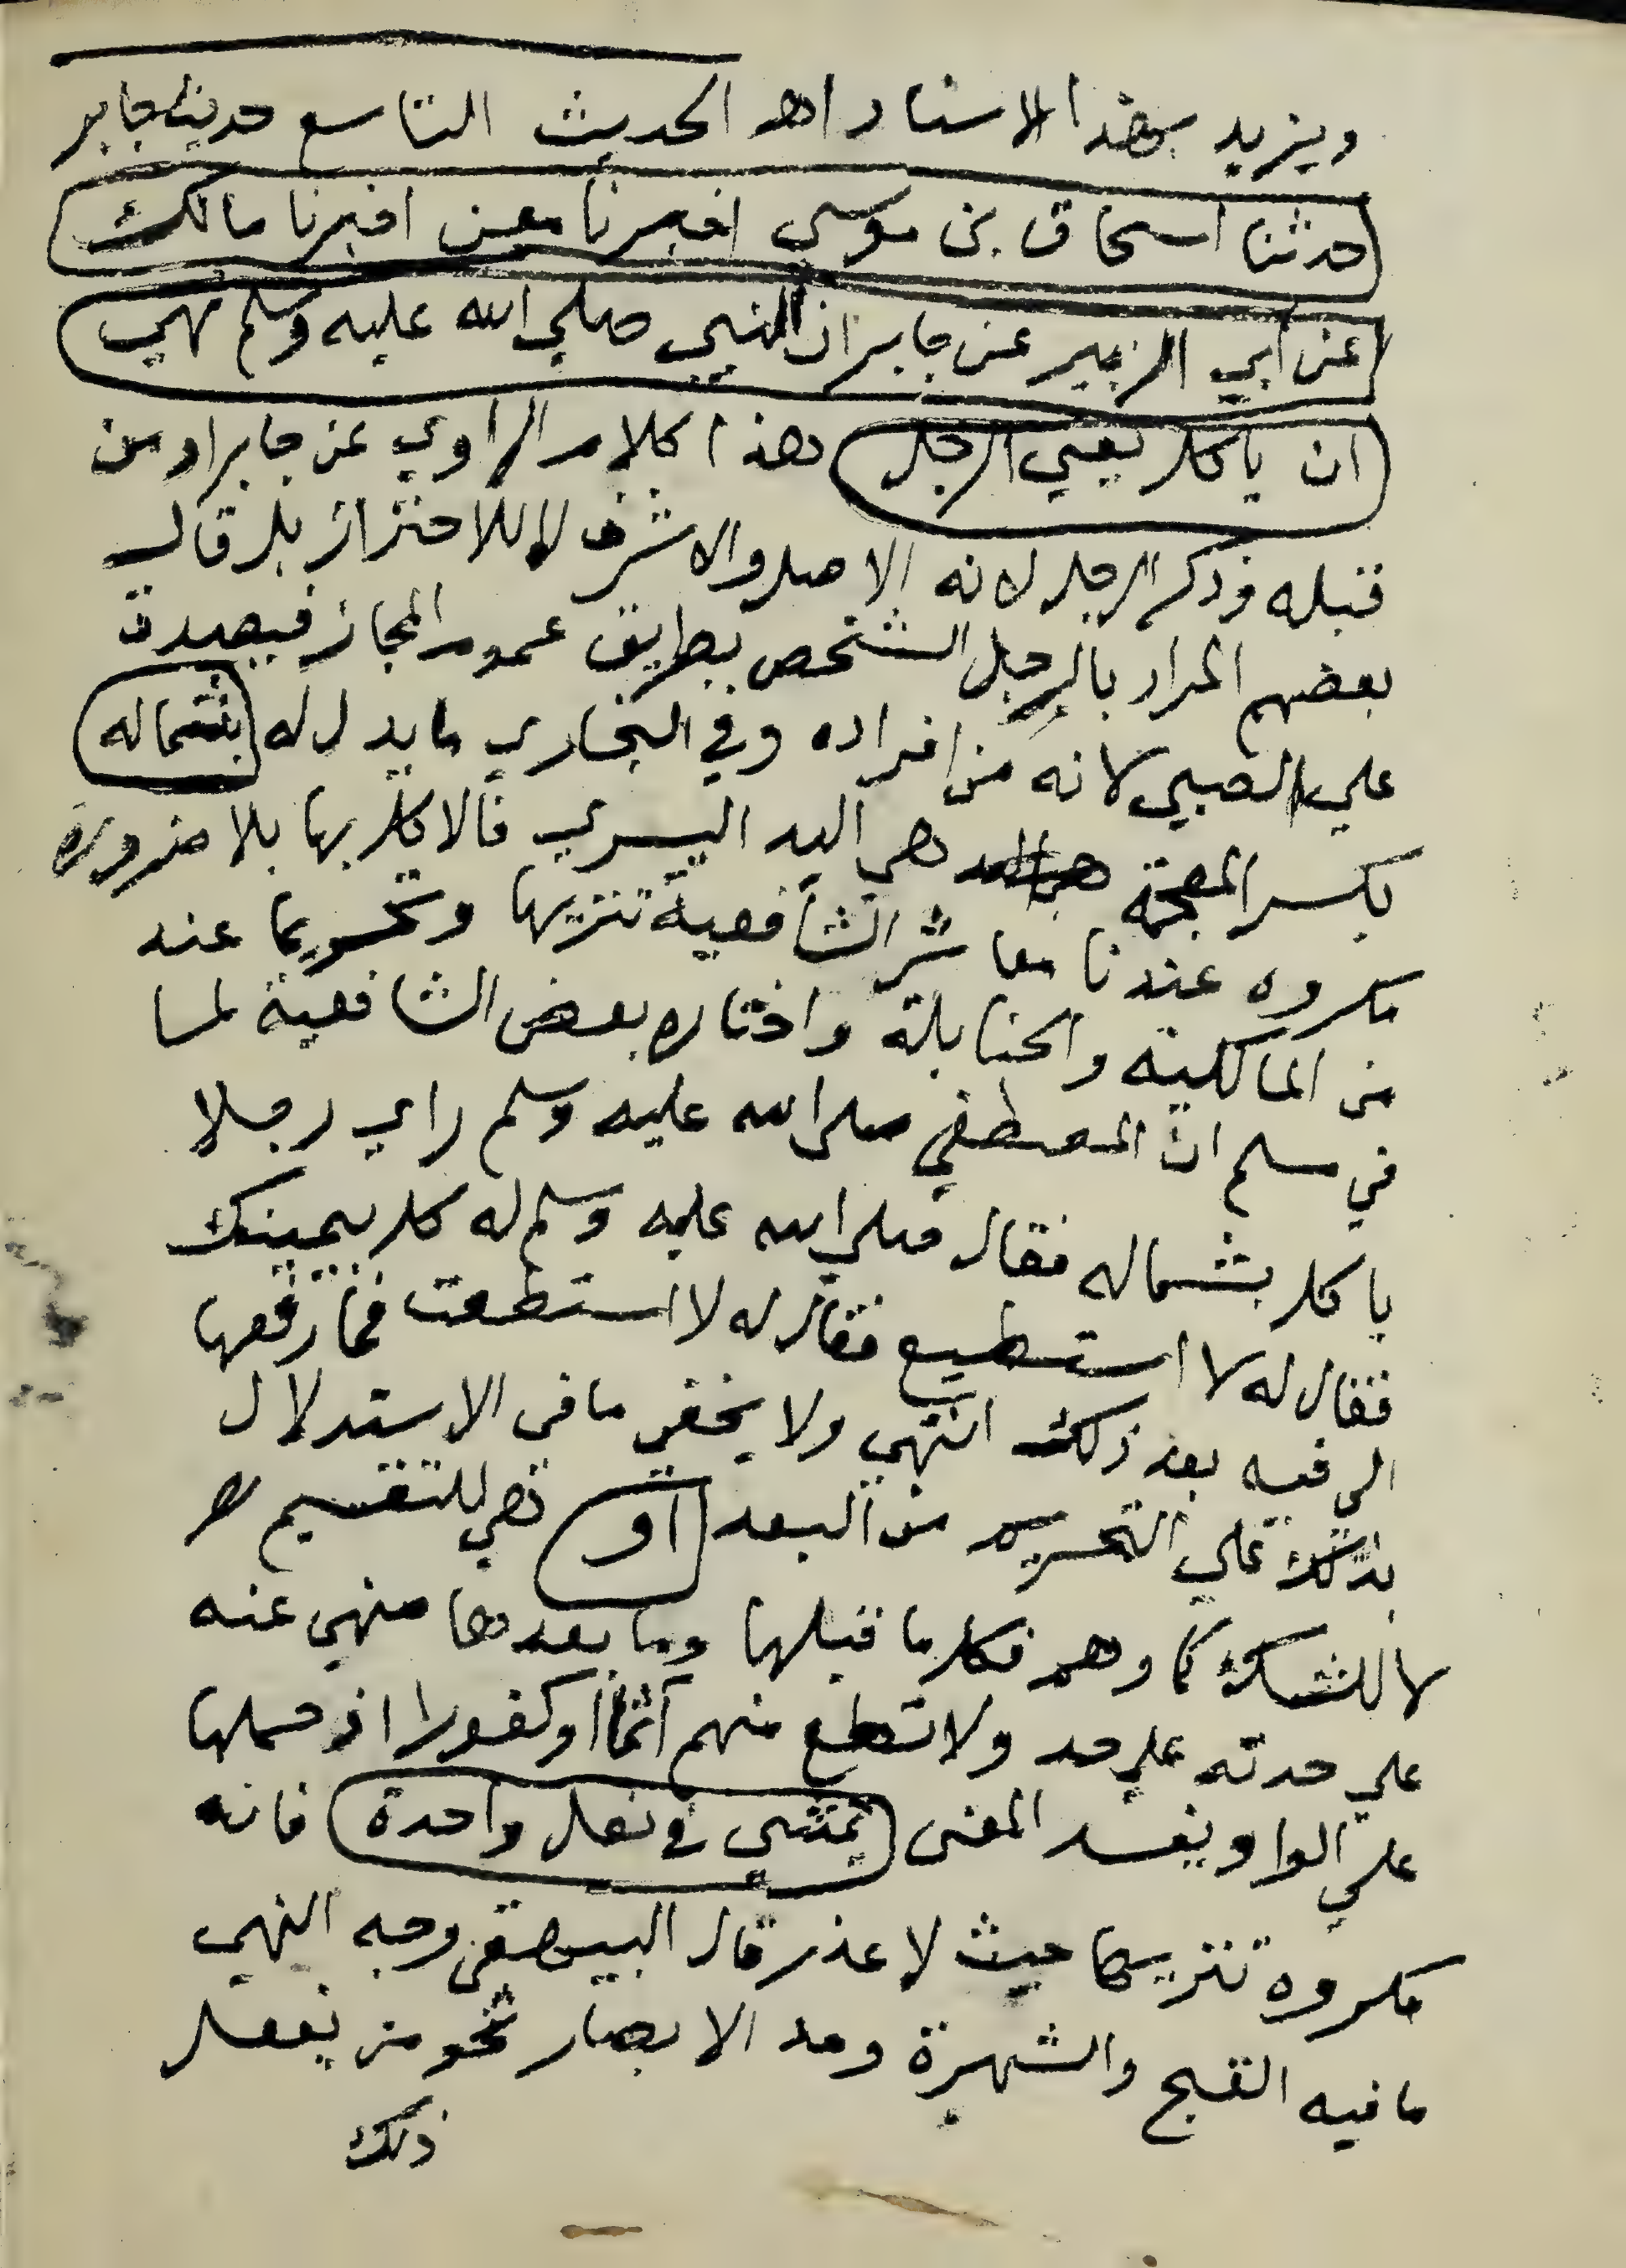 ويزيد بهذا الاسناد اهـ الحديث التاسع حديث جابر
حدثنا اسحاق بن موسي اخبرنا معن اخبرنا مالك
عن ابي الزبير عن جابر ان النبي صلي الله عليه وسلم نهي
ان ياكل يعني الرجل هذا كلام الراوي عن جابر او من
قبله وذكر الرجل لانه الاصل والاشرف لا للاحتراز بل قال
بعضهم المراد بالرجل الشخص بطريق عموم المجاز فيصدق
علي الصبي لانه من افراده وفي البخاري ما يدل له بشماله
بكسر المعجمة هي اليد اليسري فالاكل بها بلا ضرورة
مكروه عندنا معاشر الشافعية تنزيها وتحريما عند
من المالكية والحنابلة واختاره بعض الشافعية لما
في مسلم ان المصطفي صلي الله عليه وسلم راي رجلا
ياكل بشماله فقال صلي الله عليه وسلم له كل بيمينك
فقال له لا استطيع فقال له لا استطعت فما رفعها
الي فيه بعد ذلك انتهي ولا يخفي ما في الاستدلال
بذلك علي التحريم من البعد او هي للتقسيم
لا للشك كما وهم فكل ما قبلها وما بعدها منهي عنه
علي حدته علي حد ولا تطع منهم آثما او كفورا اذ حملها
علي الواو يفسد المعني يمشي في نعل واحدة فانه
مكروه تنزيها حيث لا عذر قال البيهقي وجه النهي
ما فيه القبح والشهرة ومد الابصار نحو من يفعل
ذلك